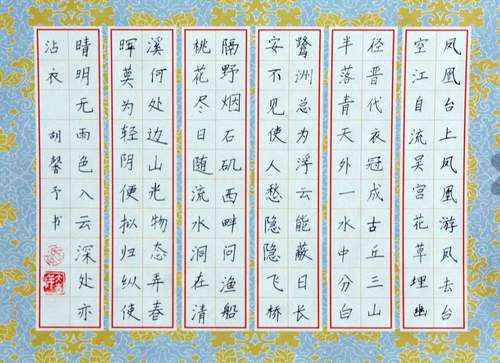 凤凰台上凤凰游凤去台
空江自流吴宫花草埋幽
径晋代衣冠成古丘三山
半落青天外一水中分白
鹭洲总为浮云能蔽日长
安不见使人愁隐隐飞桥
隔野烟石矶西畔问渔船
桃花尽日随流水洞在清
溪何处边山光物态弄春
晖莫为轻阴便拟归纵使
晴明无雨色入云深处亦
沾衣 胡馨予书